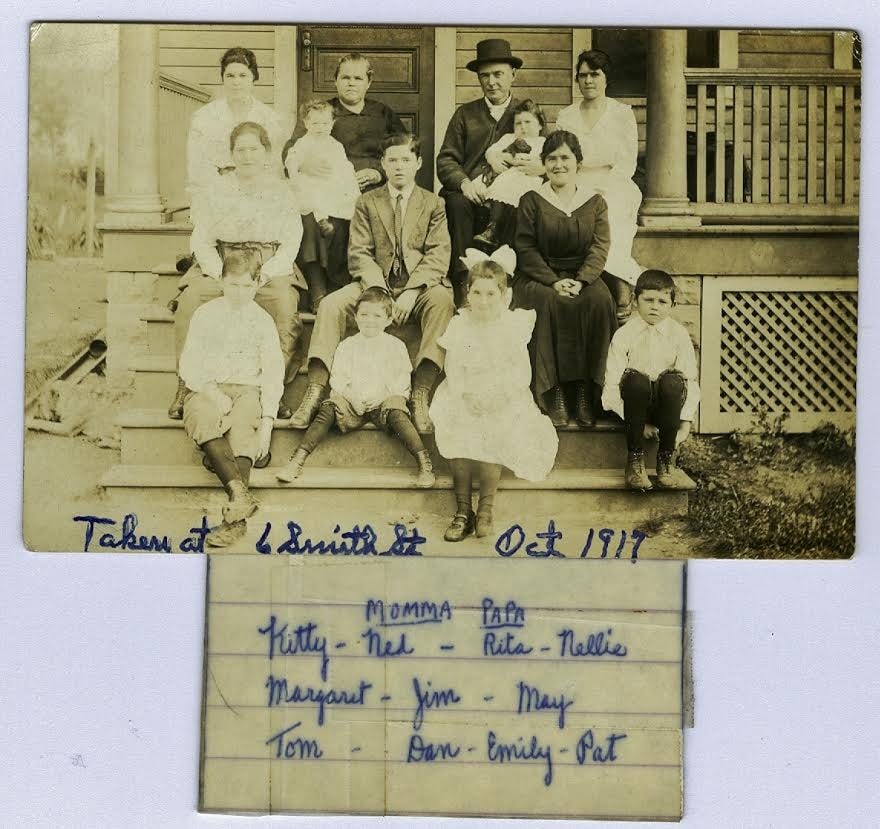 Taken at 6 Smith St Oct 1917
MOMMA PAPA
Kitty - Ned - Rita - Nellie
Margaret - Jim - May
Tom - Dan - Emily - Pat